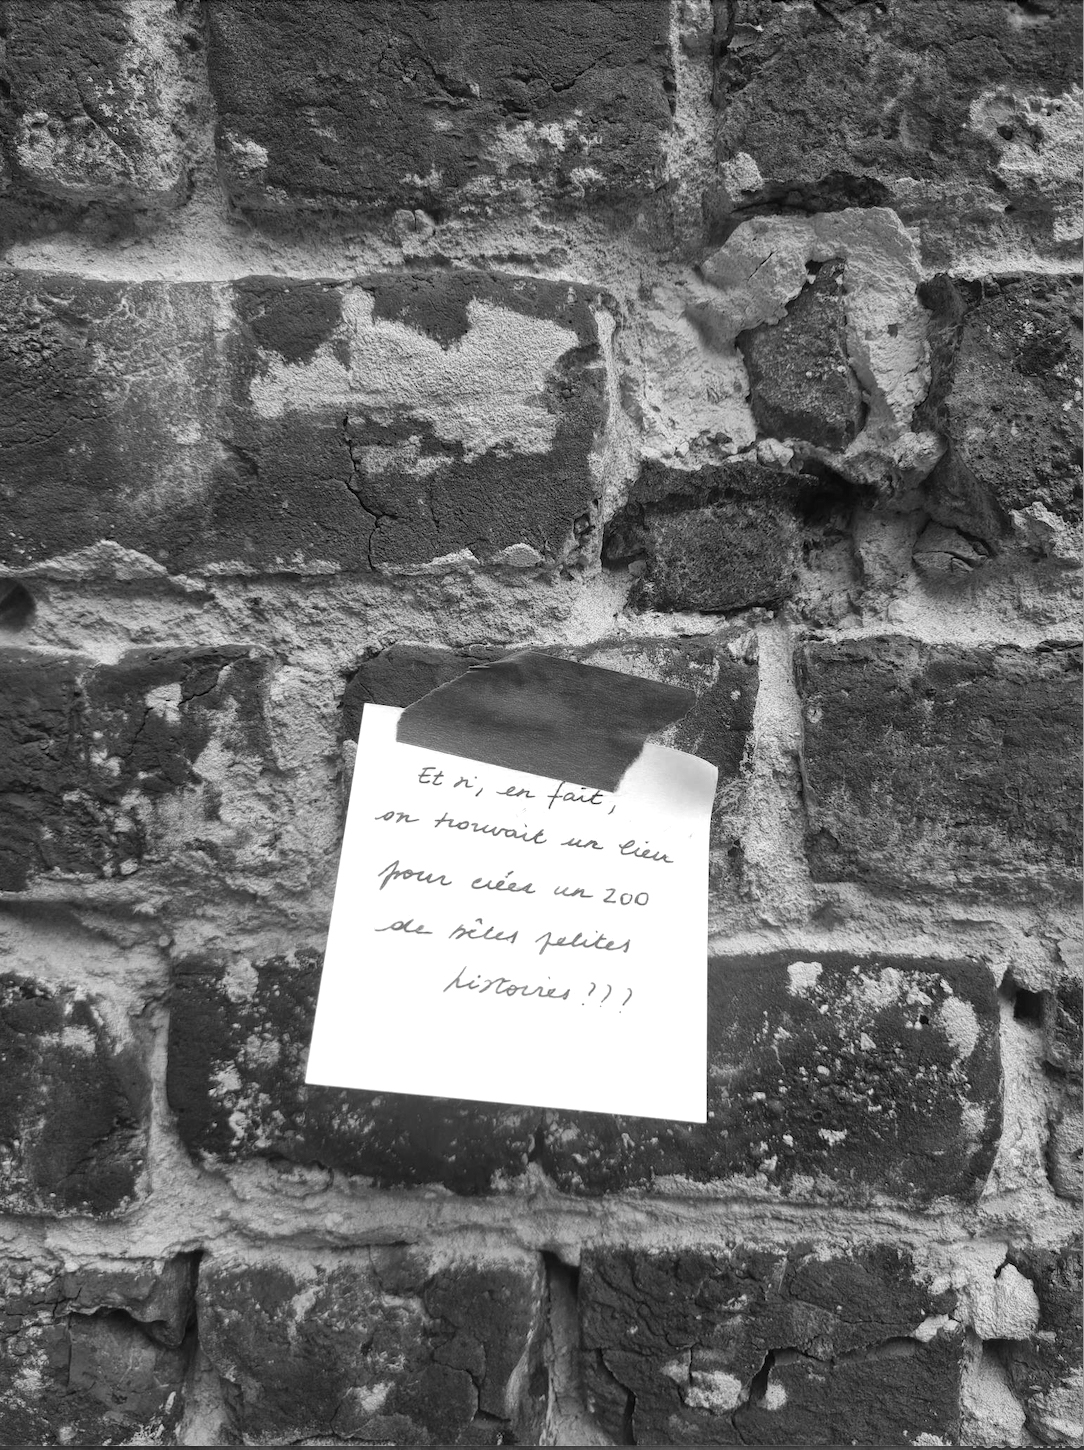 Et si, en fait,
on trouvait un lieu
pour créer un zoo
de bêtes petites
histoires ???